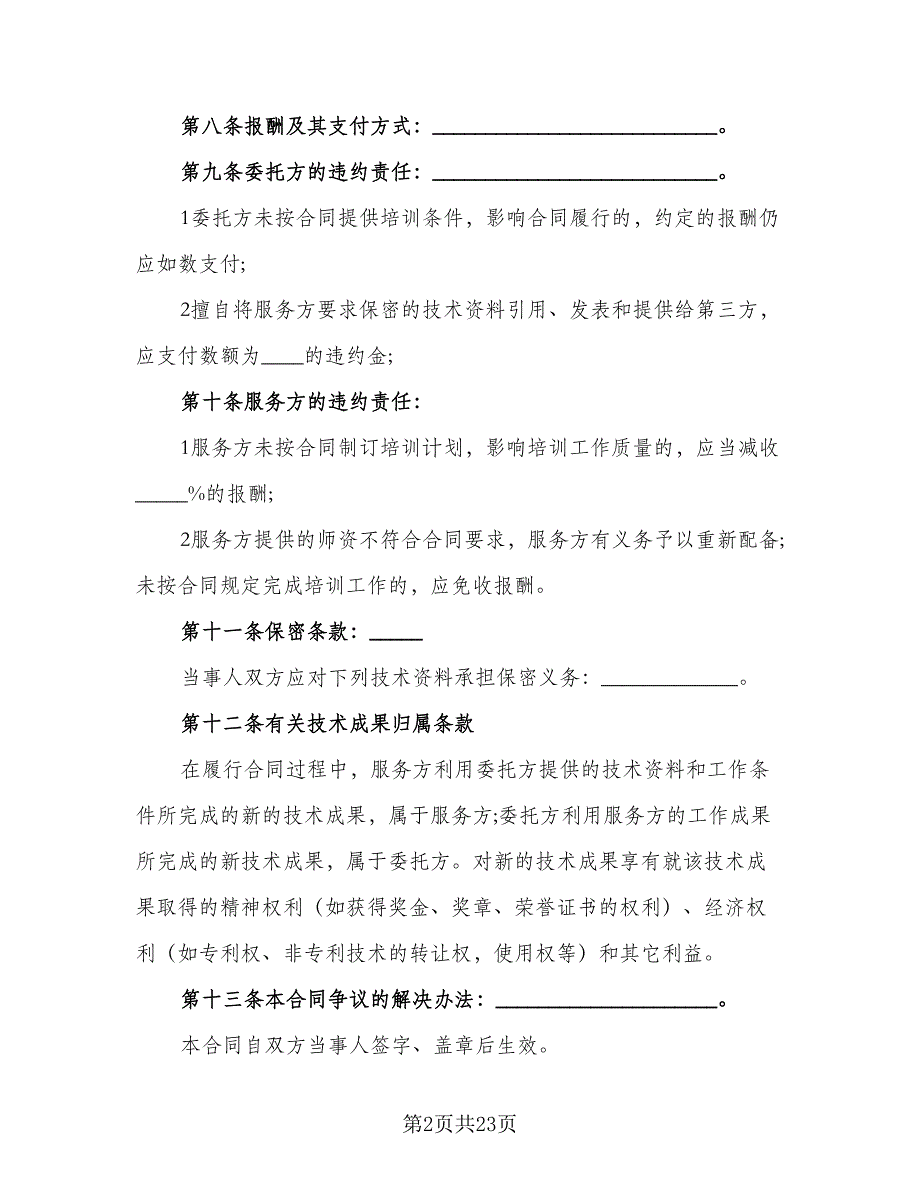 第八条报酬及其支付方式：___________________________。
第九条委托方的违约责任：___________________________。
1委托方未按合同提供培训条件，影响合同履行的，约定的报酬仍
应如数支付;
2擅自将服务方要求保密的技术资料引用、发表和提供给第三方，
应支付数额为____的违约金;
第十条服务方的违约责任：
1服务方未按合同制订培训计划，影响培训工作质量的，应当减收
_____%的报酬;
2服务方提供的师资不符合合同要求，服务方有义务予以重新配备;
未按合同规定完成培训工作的，应免收报酬。
第十一条保密条款：_____
当事人双方应对下列技术资料承担保密义务：_____________。
第十二条有关技术成果归属条款
在履行合同过程中，服务方利用委托方提供的技术资料和工作条
件所完成的新的技术成果，属于服务方;委托方利用服务方的工作成果
所完成的新技术成果，属于委托方。对新的技术成果享有就该技术成
果取得的精神权利（如获得奖金、奖章、荣誉证书的权利）、经济权
利（如专利权、非专利技术的转让权，使用权等）和其它利益。
第十三条本合同争议的解决办法：_____________________。
本合同自双方当事人签字、盖章后生效。
第2页共23页